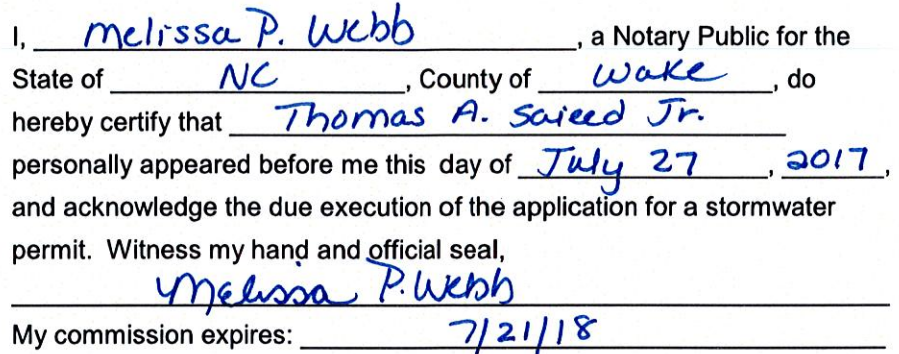 I, Melissa P. Webb, a Notary Public for the
State of NC, County of Wake, do
hereby certify that Thomas A. Saieed Jr.
personally appeared before me this day of July 27, 2017,
and acknowledge the due execution of the application for a stormwater
permit. Witness my hand and official seal,
Melissa P. Webb
My commission expires: 7/21/18